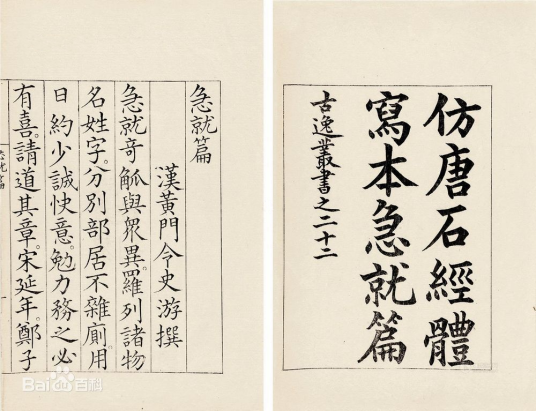 仿唐石經體
寫本急就篇
古逸叢書之二十二
急就篇
漢黃門令史游撰
急就奇觚與眾異。羅列諸物
名姓字。分別部居不雜廁。用
日約少誠快意。勉力務之必
有喜。請道其章。宋延年。鄭子
急就篇
一
Bai百科